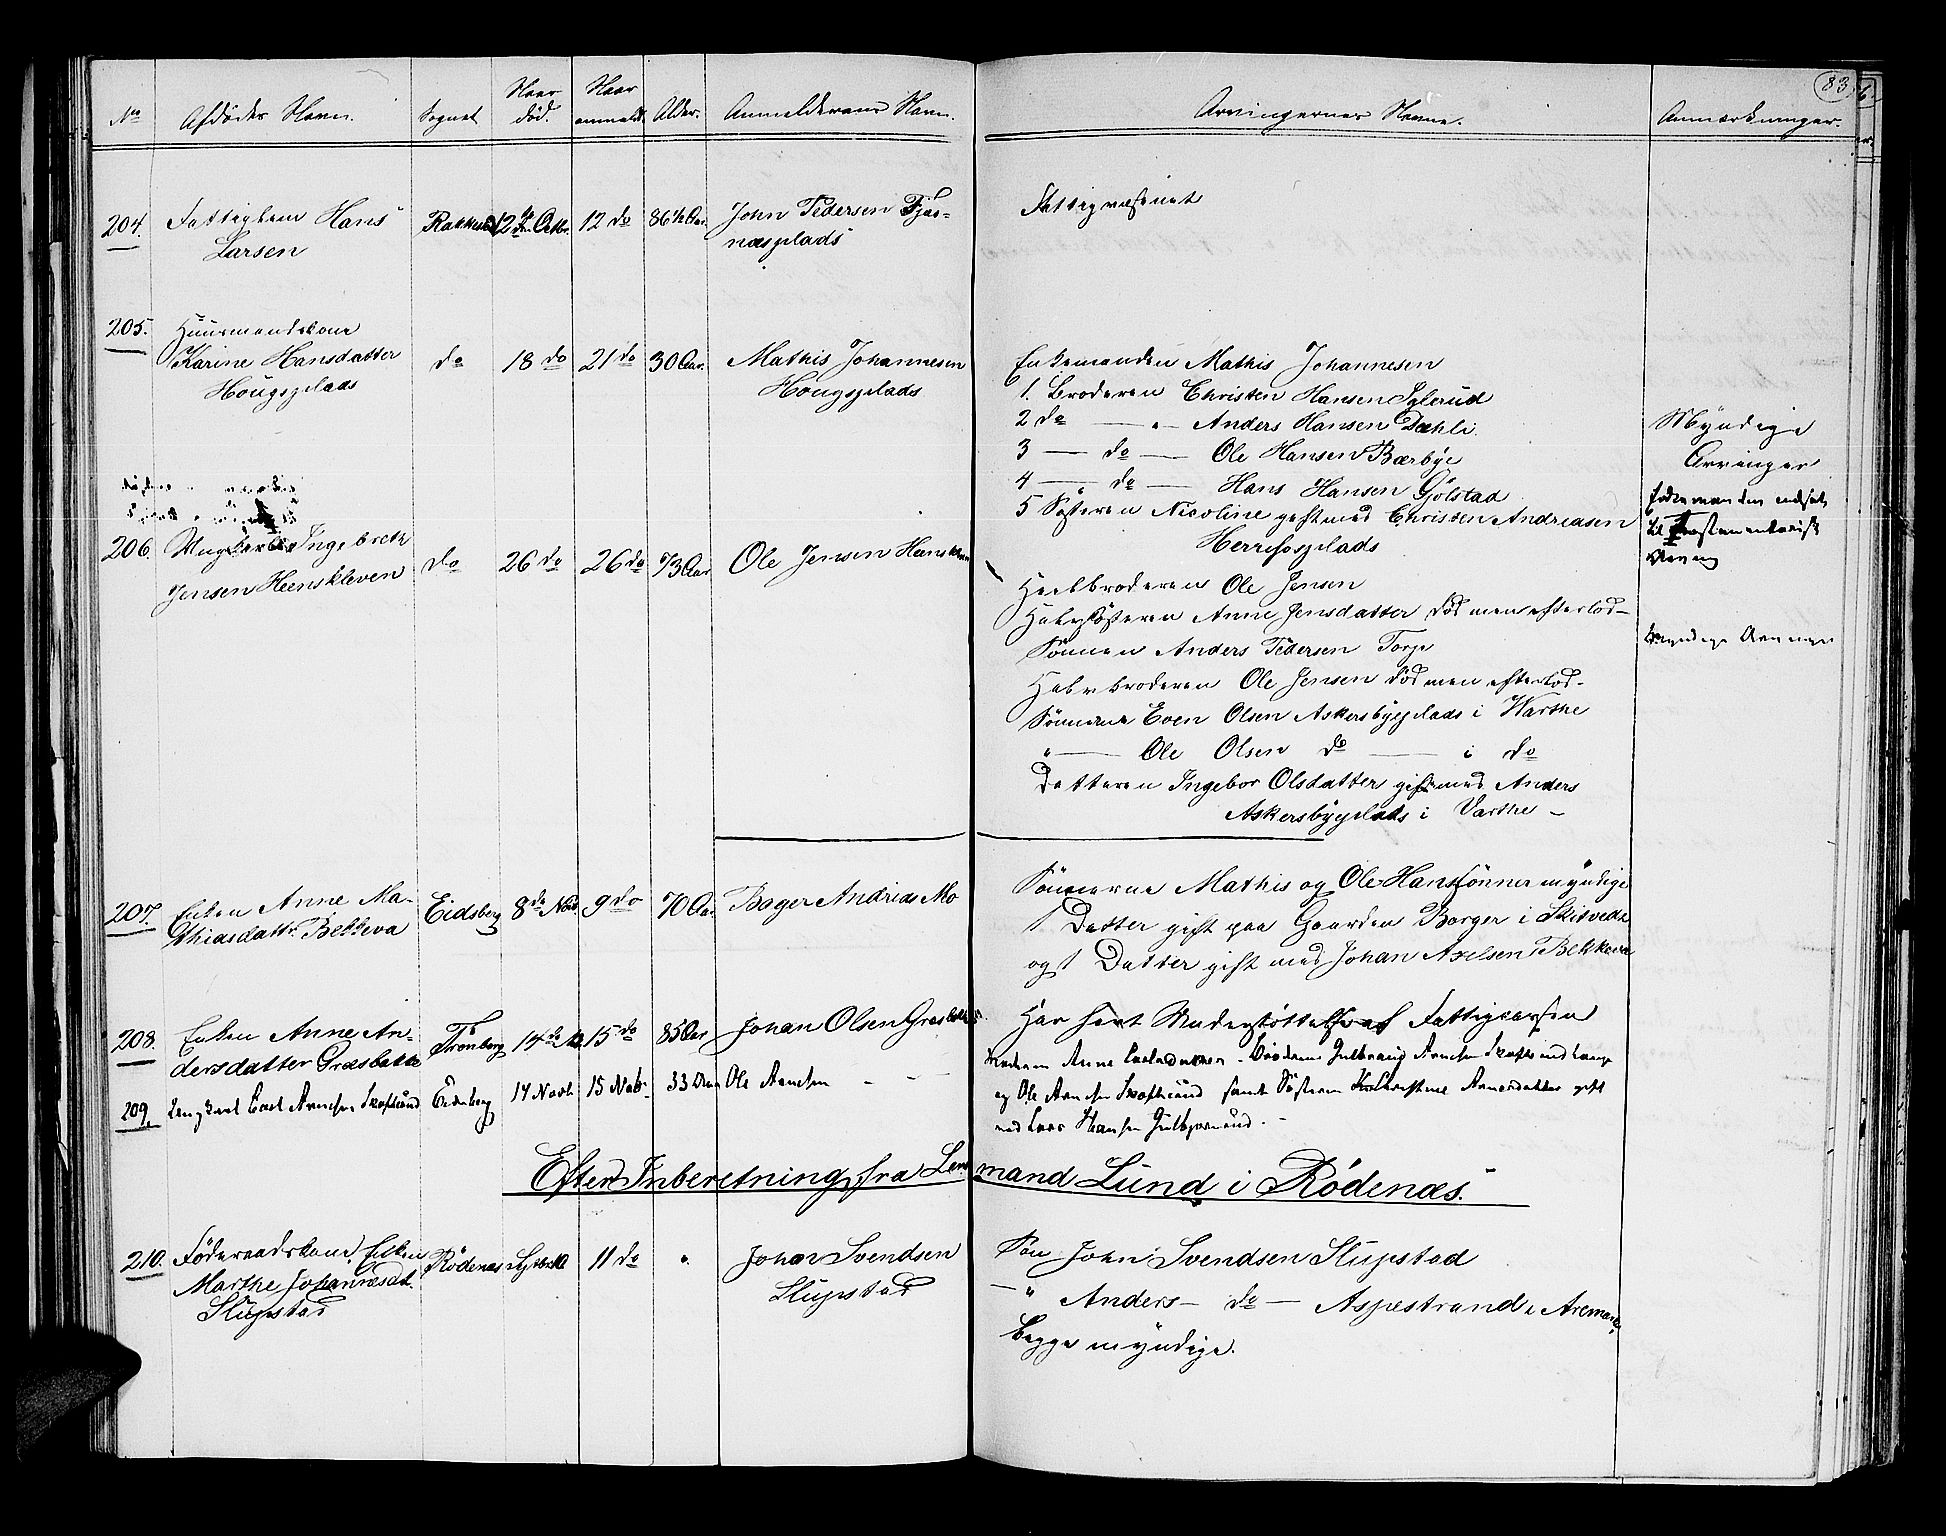 83
No Afdødes Navn. Sognet Naar død. Naar anmeldt. Alder. Anmelderens Navn. Arvingernes Navne. Anmærkninger.
204. Fattiglem Hans Rakkestad 12te Octbr. 12 do 86½ Aar. John Pedersen Fjøs- Fattigvæsenet
Larsen næsplads
205. Huusmandskone
Karine Hansdatter do 18 do 21 do 30 Aar. Mathis Johannesen Enkemanden Mathis Johannesen
Hougsplads Hougsplads 1. Broderen Christen Hansen Sglerud
2 do — " — Anders Hansen Dæhli
3 — do — Ole Hansen Bærbye
4 — do — Hans Hansen Gjølstad
5 Søsteren Nicoline gift med Christen Andreasen
Herrefosplads
Myndige
Arvinger
Enkemanden indsat
til testamentarisk
Arving
206. Ungkarl Ingebreth do 26 do 26 do 73 Aar Ole Jensen Henskleven
Jensen Heenskleven
Heelbroderen Ole Jensen
Halvsøsteren Anne Jensdatter død men efterlod-
Sønnen Anders Pedersen Torp
Halvbroderen Ole Jensen død men efterlod-
Sønnerne Even Olsen Askersbyeplads i Varthe
" — Ole Olsen do — i do
Datteren Ingebor Olsdatter gift med Anders
Askersbyeplads i Varthe —
Myndige Arvinger
207. Enken Anne Ma- Eidsberg 8de Nov 9 do 70 Aar. Bager Andreas Mo Sønnerne Mathis og Ole Hanssønner myndige
thiasdattr. Bekkeva 1 Datter gift paa Gaarden Borger i Skiptvedt
og 1 Datter gift med Johan Axelsen Bekkeva
208. Enken Anne An- Trømborg 14 do 15 do 85 Aar Johan Olsen Græsbakke Har havt Understøttelse af Fattigcassen
dersdatter Græsbakke
209. Ungkarl Carl Arnesen Eidsberg 14 Novb 15 Nob. 33 Aar Ole Arnesen — — Moderen Anne Carlsdatter. Brødrene Gulbrand Arnesen
og Ole Arnesen samt Søsteren Christine Arnesdatter gift
med Lars Hansen
Efter Inberetning fra Lensmand Lund i Rødenæs.
210. Føderaadskone Enken Rødenæs 11 do " Johan Svendsen Søn John Svendsen Slupstad
Marthe Johannesdt. Slupstad — " Anders — do — Aspestrand i Aremark,
Slupstad begge myndige.